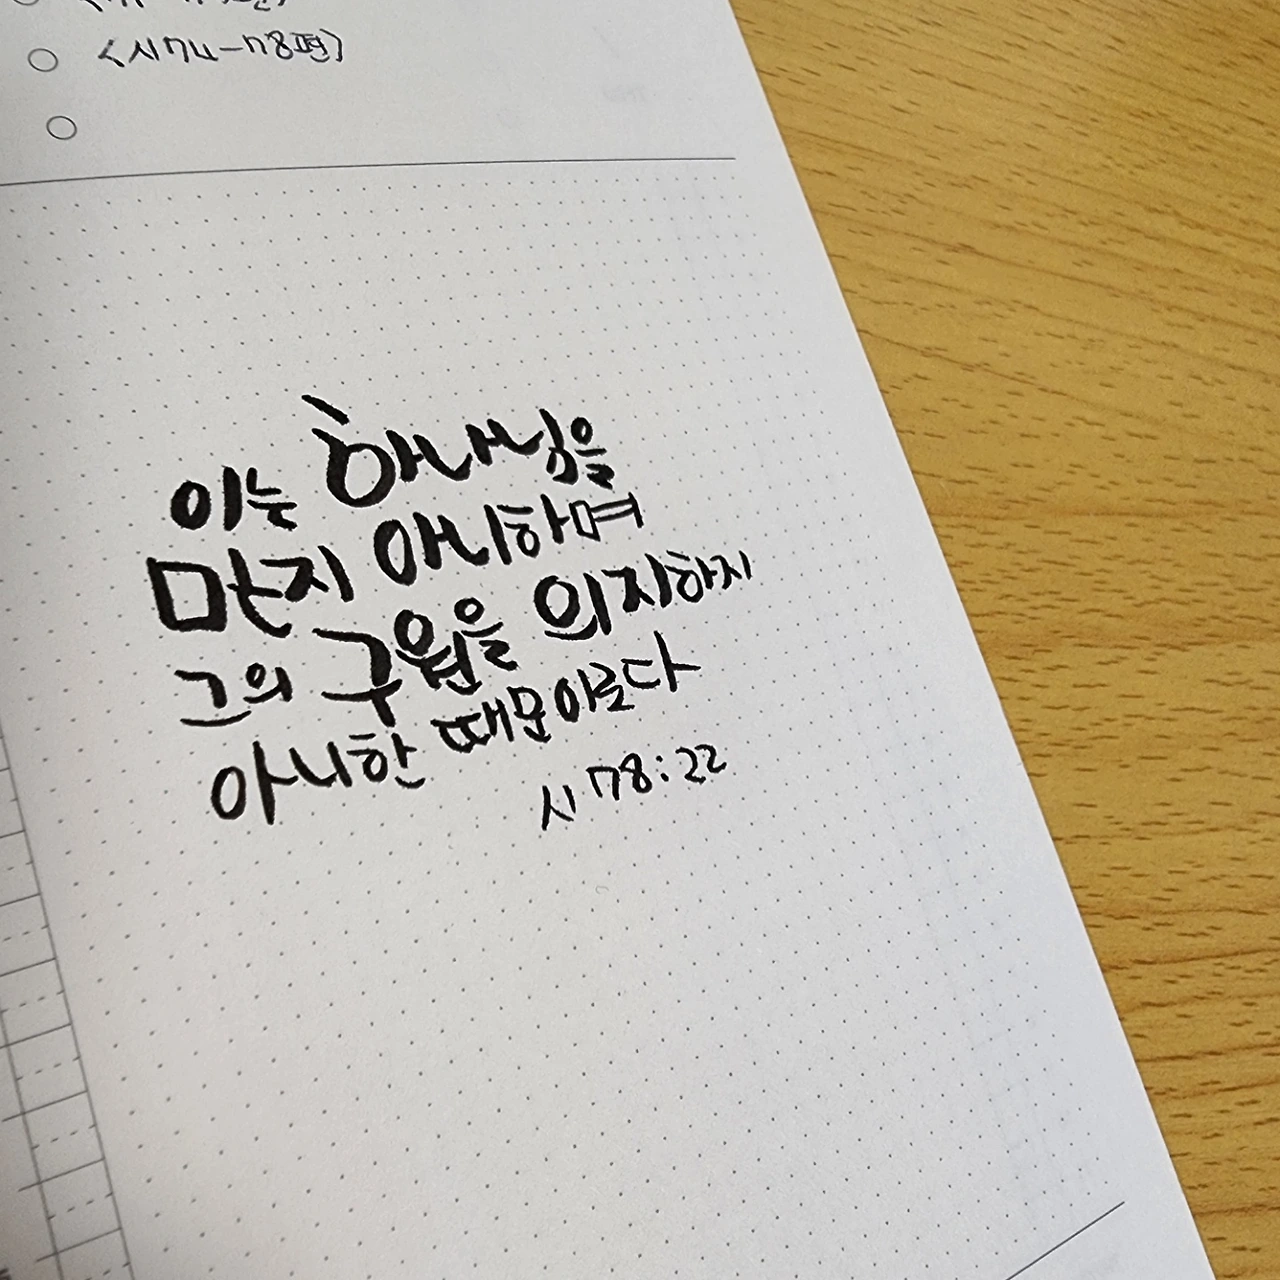 <시74-78편>
이는 하나님을
믿지 아니하며
그의 구원을 의지하지
아니한 때문이로다
시 78:22